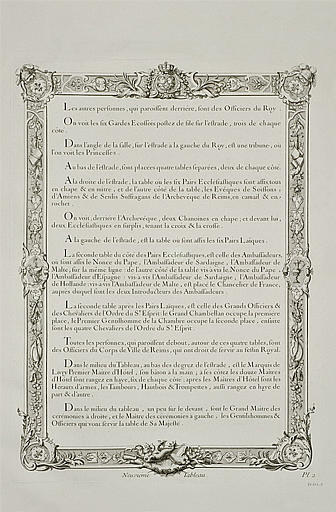 Les autres personnes, qui paroissent derriere, sont des Officiers du Roy
On voit les six Gardes Ecossois postez de file sur l'estrade, trois de chaque
côté.
Dans l'angle de la salle, sur l'estrade à la gauche du Roy, est une tribune, où
l'on voit les Princesses.
Au bas de l'estrade, sont placées quatre tables séparées, deux de chaque côté.
A la droite de l'estrade, la table où les six Pairs Ecclesiastiques sont assis tous
en chape & en mitre; et de l'autre côté de la table, les Evêques de Soissons,
d'Amiens & de Senlis Suffragans de l'Archeveque de Reims, en camail & en
rochet.
On voit, derriere l'Archevêque, deux Chanoines en chape; et devant lui,
deux Ecclesiastiques en surplis, tenant la croix & la crosse.
A la gauche de l'estrade, est la table où sont assis les six Pairs Laïques.
La seconde table du côté des Pairs Ecclesiastiques, est celle des Ambassadeurs,
où sont assis le Nonce du Pape, l'Ambassadeur de Sardaigne, l'Ambassadeur de
Malte, sur la même ligne: de l'autre côté de la table vis-à-vis le Nonce du Pape,
l'Ambassadeur d'Espagne: vis-à-vis l'Ambassadeur de Sardaigne, l'Ambassadeur
de Hollande: vis-à-vis l'Ambassadeur de Malte, est placé le Chancelier de France,
auprès duquel sont les deux Introducteurs des Ambassadeurs.
La seconde table, après les Pairs Laïques, est celle des Grands Officiers &
des Chevaliers de l'Ordre du St Esprit: le Grand Chambellan occupe la premiere
place, le Premier Gentilhomme de la Chambre occupe la seconde place, ensuite
sont les quatre Chevaliers de l'Ordre du St Esprit.
Toutes les personnes, qui paroissent debout, autour de ces quatre tables, sont
des Officiers du Corps de Ville de Reims, qui ont droit de servir au festin Royal.
Dans le milieu du Tableau, au bas des degrez de l'estrade, est le Marquis de
Livry Premier Maitre d'Hôtel, son bâton à la main; à ses côtez les douze Maitres
d'Hôtel sont rangez en haye, six de chaque côté; après les Maitres d'Hôtel sont les
Herauts d'armes, les Tambours, Hautbois & Trompettes, aussi rangez en haye de
part & d'autre.
Dans le milieu du tableau, un peu sur le devant, sont le Grand Maitre des
cérémonies à droite, et le Maitre des cérémonies à gauche, les Gentilshommes &
Officiers qui vont servir la table de Sa Majesté
Neuvieme Tableau
Pl. 2